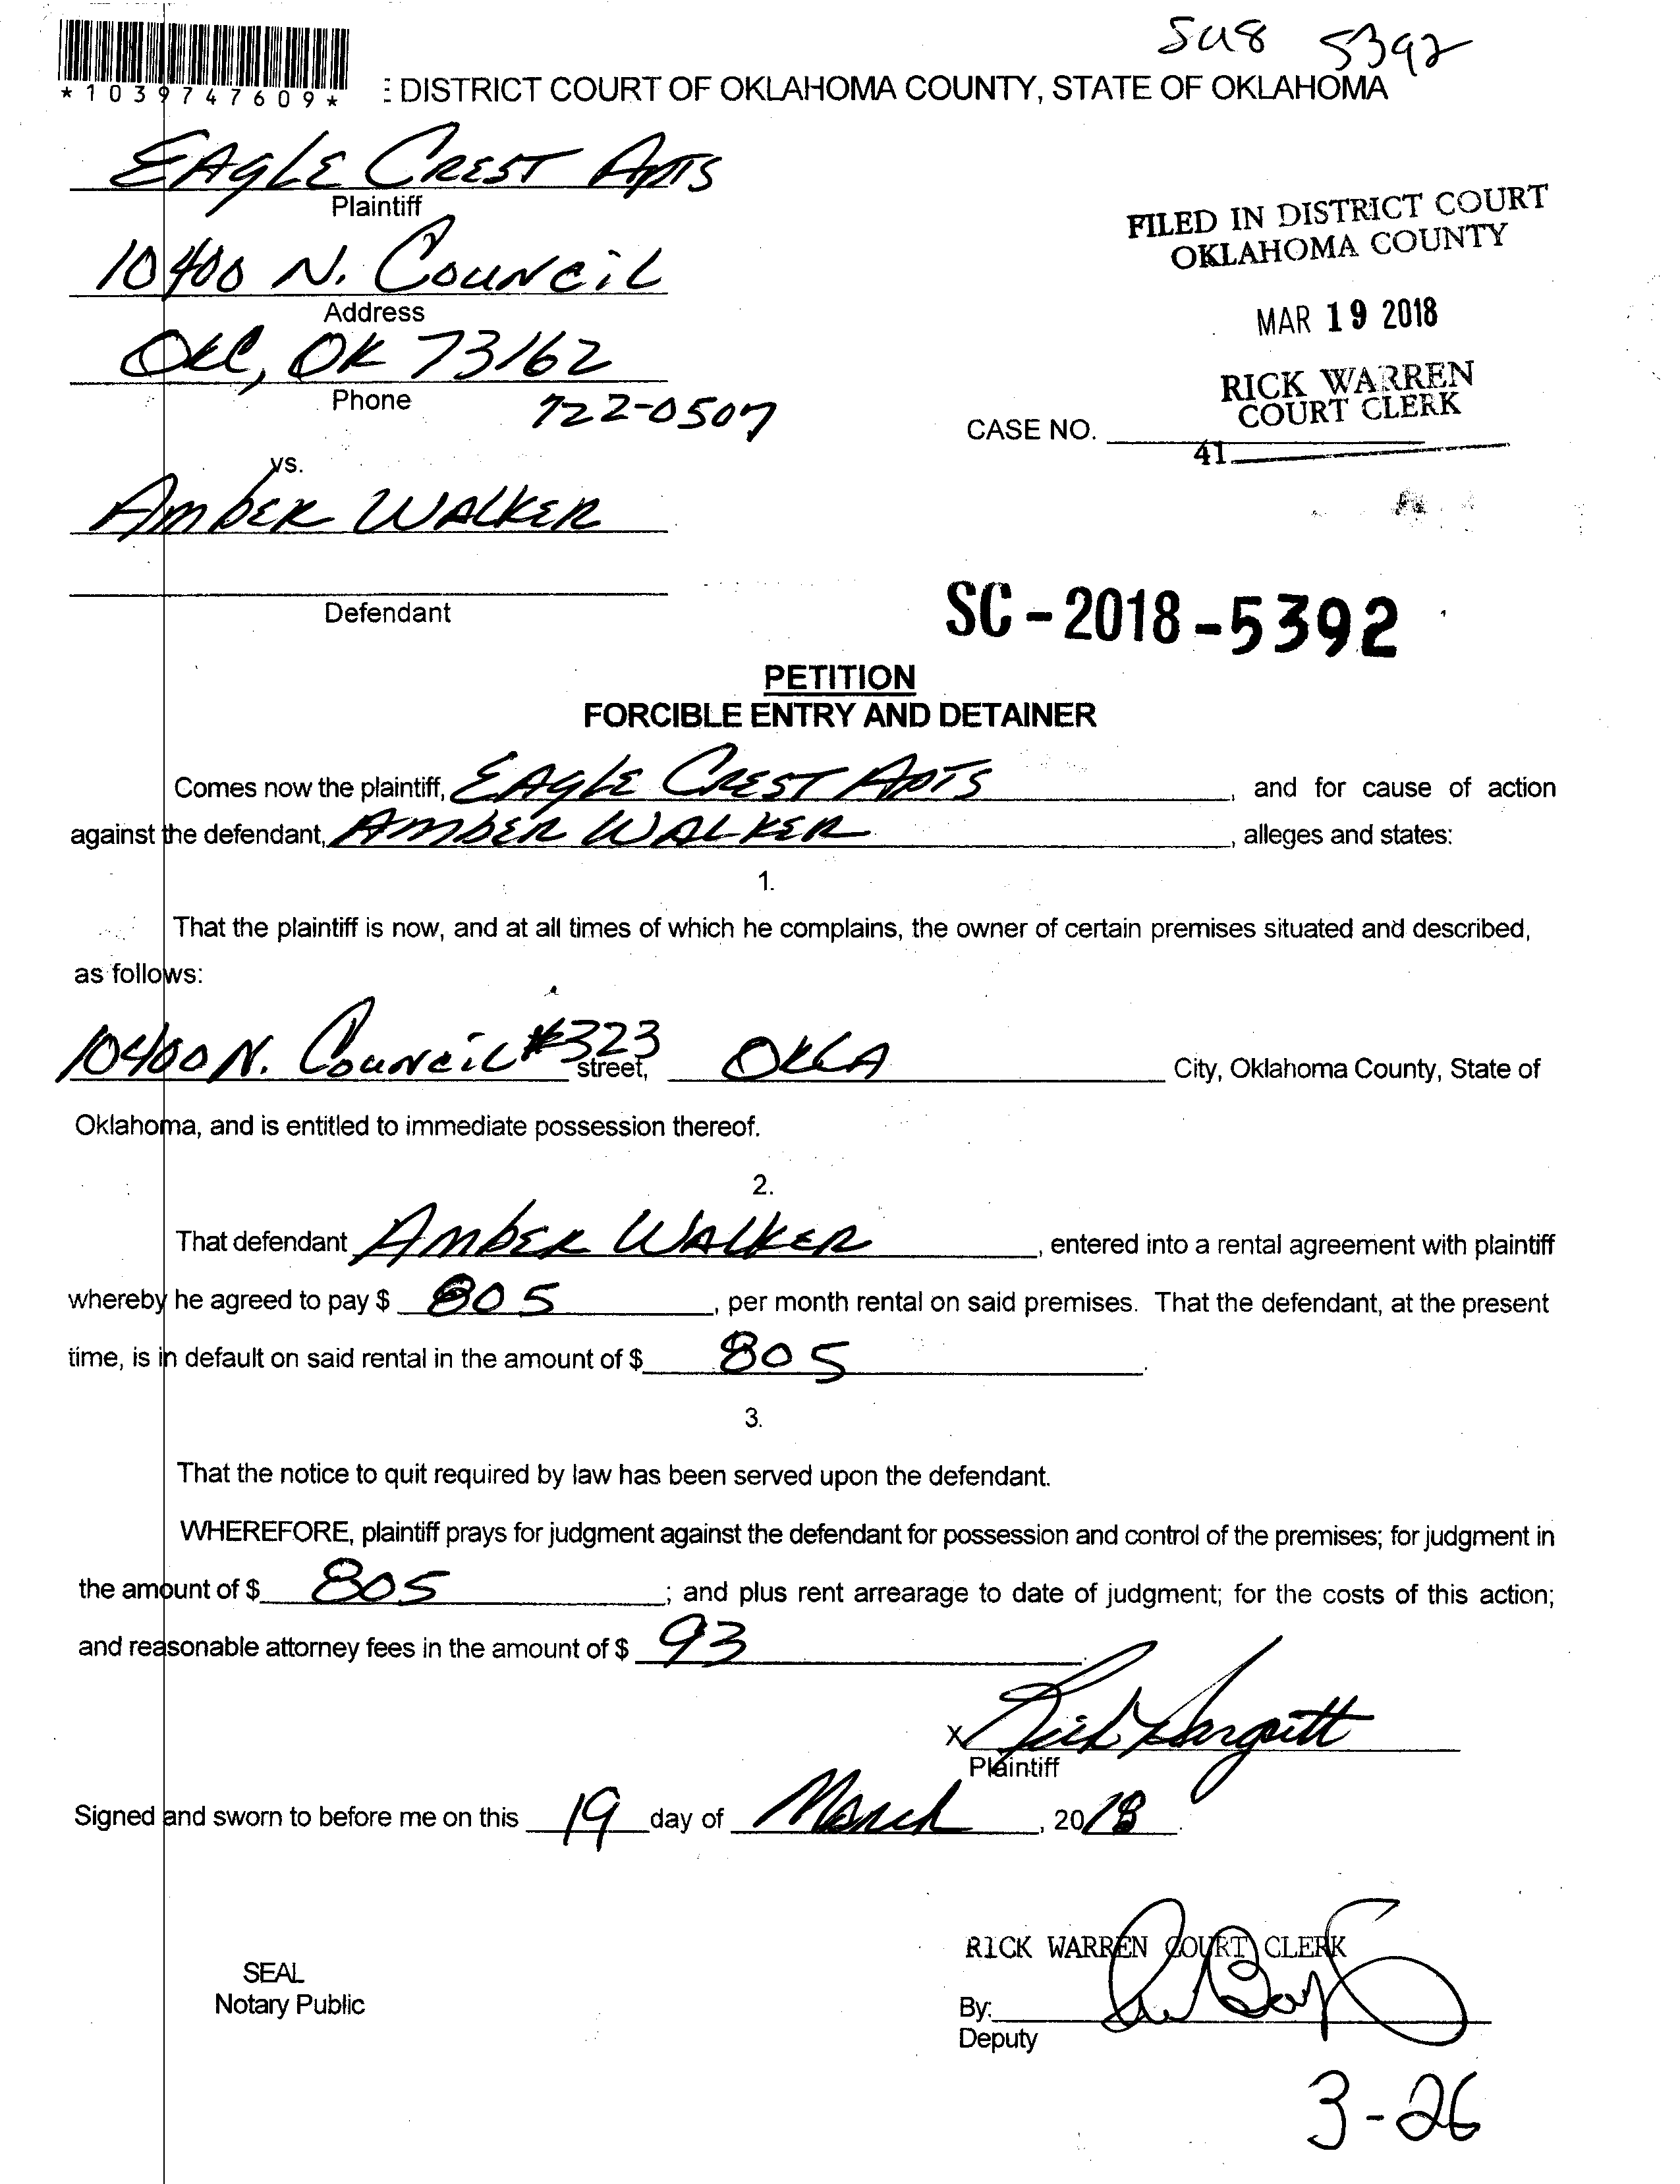 5392
*1039747609*
DISTRICT COURT OF OKLAHOMA COUNTY, STATE OF OKLAHOMA
EAGLE CREST APTS
Plaintiff
FILED IN DISTRICT COURT
OKLAHOMA COUNTY
10400 N. COUNCIL
Address
MAR 19 2018
OKC, OK 73162
RICK WARREN
COURT CLERK
Phone 722-0507
CASE NO.
41
vs.
AMBER WALKER
Defendant
SC-2018-5392
PETITION
FORCIBLE ENTRY AND DETAINER
Comes now the plaintiff, EAGLE CREST APTS, and for cause of action
against the defendant, AMBER WALKER, alleges and states:
1.
That the plaintiff is now, and at all times of which he complains, the owner of certain premises situated and described,
as follows:
10400 N. COUNCIL #323 street, OKLA City, Oklahoma County, State of
Oklahoma, and is entitled to immediate possession thereof.
2.
That defendant AMBER WALKER, entered into a rental agreement with plaintiff
whereby he agreed to pay $ 805, per month rental on said premises. That the defendant, at the present
time, is in default on said rental in the amount of $ 805.
3.
That the notice to quit required by law has been served upon the defendant.
WHEREFORE, plaintiff prays for judgment against the defendant for possession and control of the premises; for judgment in
the amount of $ 805; and plus rent arrearage to date of judgment; for the costs of this action;
and reasonable attorney fees in the amount of $ 93.
X
Plaintiff
Signed and sworn to before me on this 19 day of March, 2018.
RICK WARREN COURT CLERK
SEAL
Notary Public
By:
Deputy
3-26